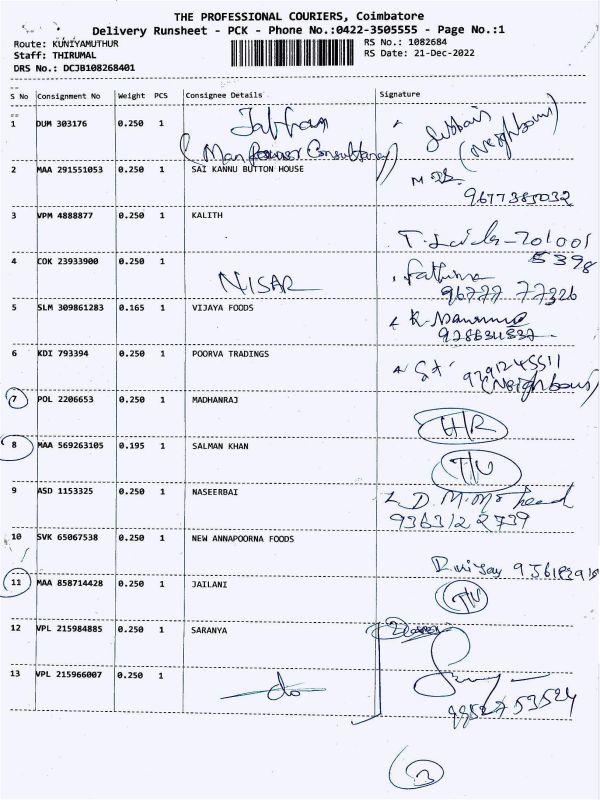 THE PROFESSIONAL COURIERS, Coimbatore
Delivery Runsheet - PCK - Phone No.:0422-3505555 - Page No.:1
Route: KUNIYAMUTHUR RS No.: 1082684
Staff: THIRUMAL RS Date: 21-Dec-2022
DRS No.: DCJB108268401
S No Consignment No Weight PCS Consignee Details Signature
1 DUM 303176 0.250 1 (Neighbour)
2 MAA 291551053 0.250 1 SAI KANNU BUTTON HOUSE
9677385032
3 VPM 4888877 0.250 1 KALITH
4 COK 23933900 0.250 1 NISAR Fathima
96777 77326
5 SLM 309861283 0.165 1 VIJAYA FOODS
6 KDI 793394 0.250 1 POORVA TRADINGS
(Neighbour)
7 POL 2206653 0.250 1 MADHANRAJ
8 MAA 569263105 0.195 1 SALMAN KHAN
9 ASD 1153325 0.250 1 NASEERBAI
9363122739
10 SVK 65067538 0.250 1 NEW ANNAPOORNA FOODS
11 MAA 858714428 0.250 1 JAILANI
12 VPL 215984885 0.250 1 SARANYA
13 VPL 215966007 0.250 1 do